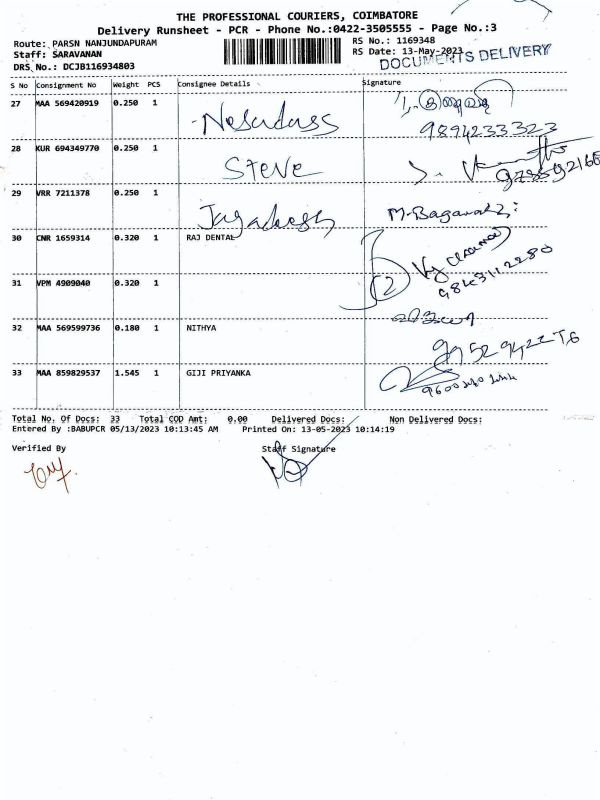 THE PROFESSIONAL COURIERS, COIMBATORE
Delivery Runsheet - PCR - Phone No.:0422-3505555 - Page No.:3
Route: PARSN NANJUNDAPURAM RS No.: 1169348
Staff: SARAVANAN RS Date: 13-May-2023
DRS No.: DCJB116934803 DOCUMENTS DELIVERY
S No Consignment No Weight PCS Consignee Details Signature
27 MAA 569420919 0.250 1 Nesadass
9894233323
28 KUR 694349770 0.250 1 STEVE
29 VRR 7211378 0.250 1 Jagadeesh M. Bagavathi
30 CNR 1659314 0.320 1 RAJ DENTAL
2 9843112280
31 VPM 4909040 0.320 1
32 MAA 569599736 0.180 1 NITHYA
33 MAA 859829537 1.545 1 GIJI PRIYANKA
Total No. Of Docs: 33 Total COD Amt: 0.00 Delivered Docs: Non Delivered Docs:
Entered By :BABUPCR 05/13/2023 10:13:45 AM Printed On: 13-05-2023 10:14:19
Verified By Staff Signature